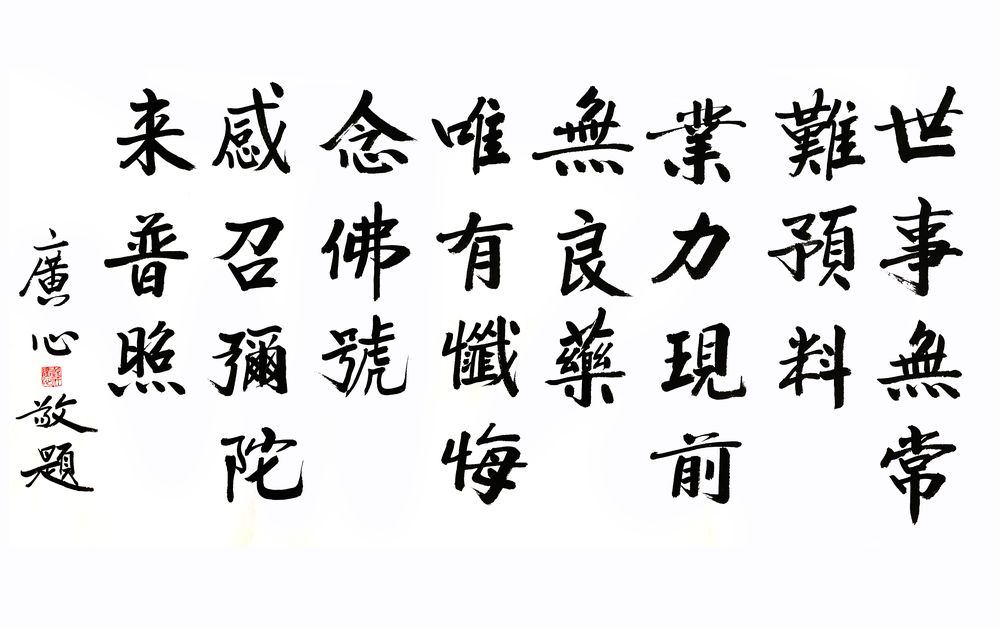 世事無常
難預料
業力現前
無良藥
唯有懺悔
念佛號
感召彌陀
来普照
廣心敬題